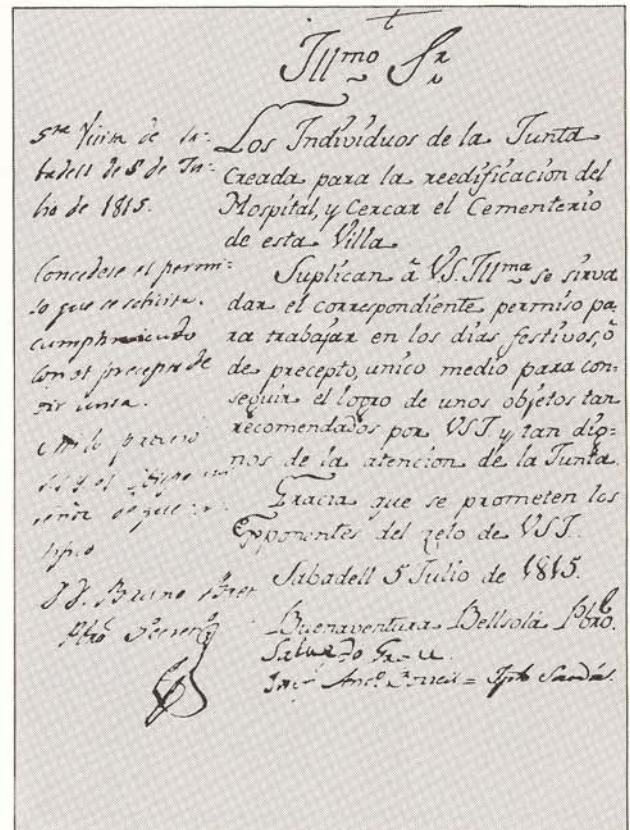 Illmo Sr
Los Individuos de la Junta
Creada para la reedificacion del
Hospital, y Cercar el Cementerio
de esta Villa
Suplican â VS. Illma se sirva
dar el correspondiente permiso pa-
ra trabajar en los dias festivos, ô
de precepto, unico medio para con=
seguir el logro de unos objetos tan
recomendados por VSI. y tan dig=
nos de la atencion de la Junta.
Gracia que se prometen los
Exponentes del zelo de VSI.
Sabadell 5 Julio de 1815.
Buenaventura Bellsolá Pbro.
Salvador
Sta Visita de Sa=
badell de 5 de Ju=
lio de 1815.
Concedese el permi=
so que se solicita.
cumpliendo
con el precepto de
oir misa.
y el
de que
D. Bruno Bret
Pbro Secreto